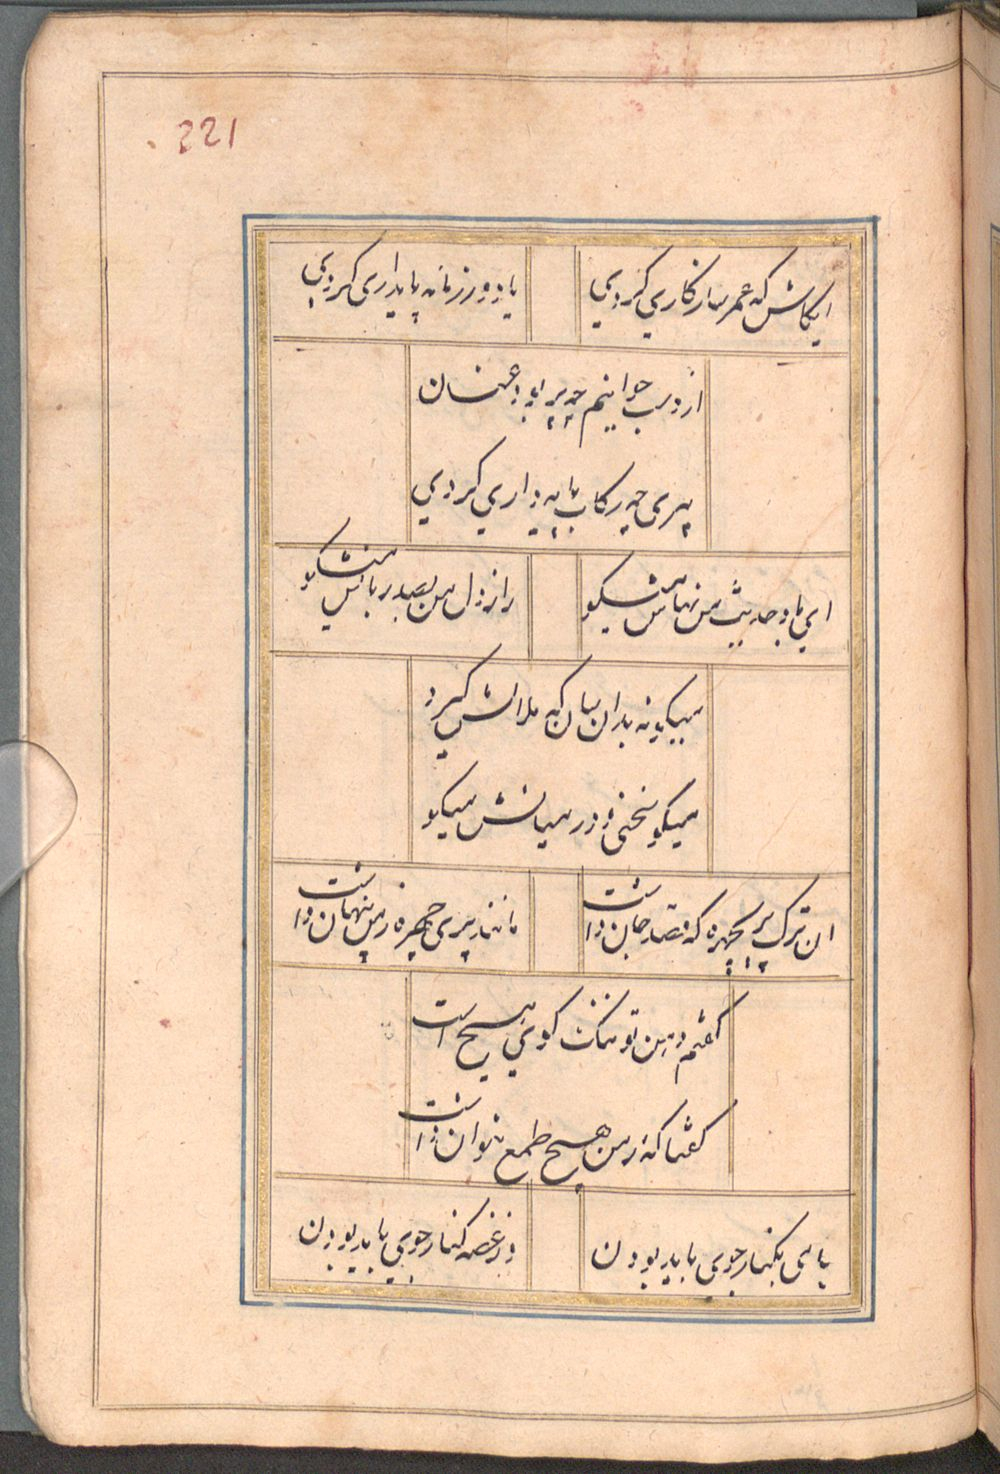 221
ایکاش که عمر سازکاری کردی
یا دور زمانه پایداری کردی
از دست جوانیم چو بربود عنان
پیری چو رکاب پایه داری کردی
ای باد حدیث من نهانش میکو
راز دل من بصد زبانش میکو
میکو نه بدان سان که ملالش کیرد
میکو سخنی و در میانش میکو
ان ترک پریچهره که قصد جان داشت
مانند پری چهره ز من پنهان داشت
کفتم دهن تنک تو کوی هیچ است
کفتا که ز من هیچ طمع نتوان داشت
با می بکنار جوی باید بودن
وز غصه کنار جوی باید بودن